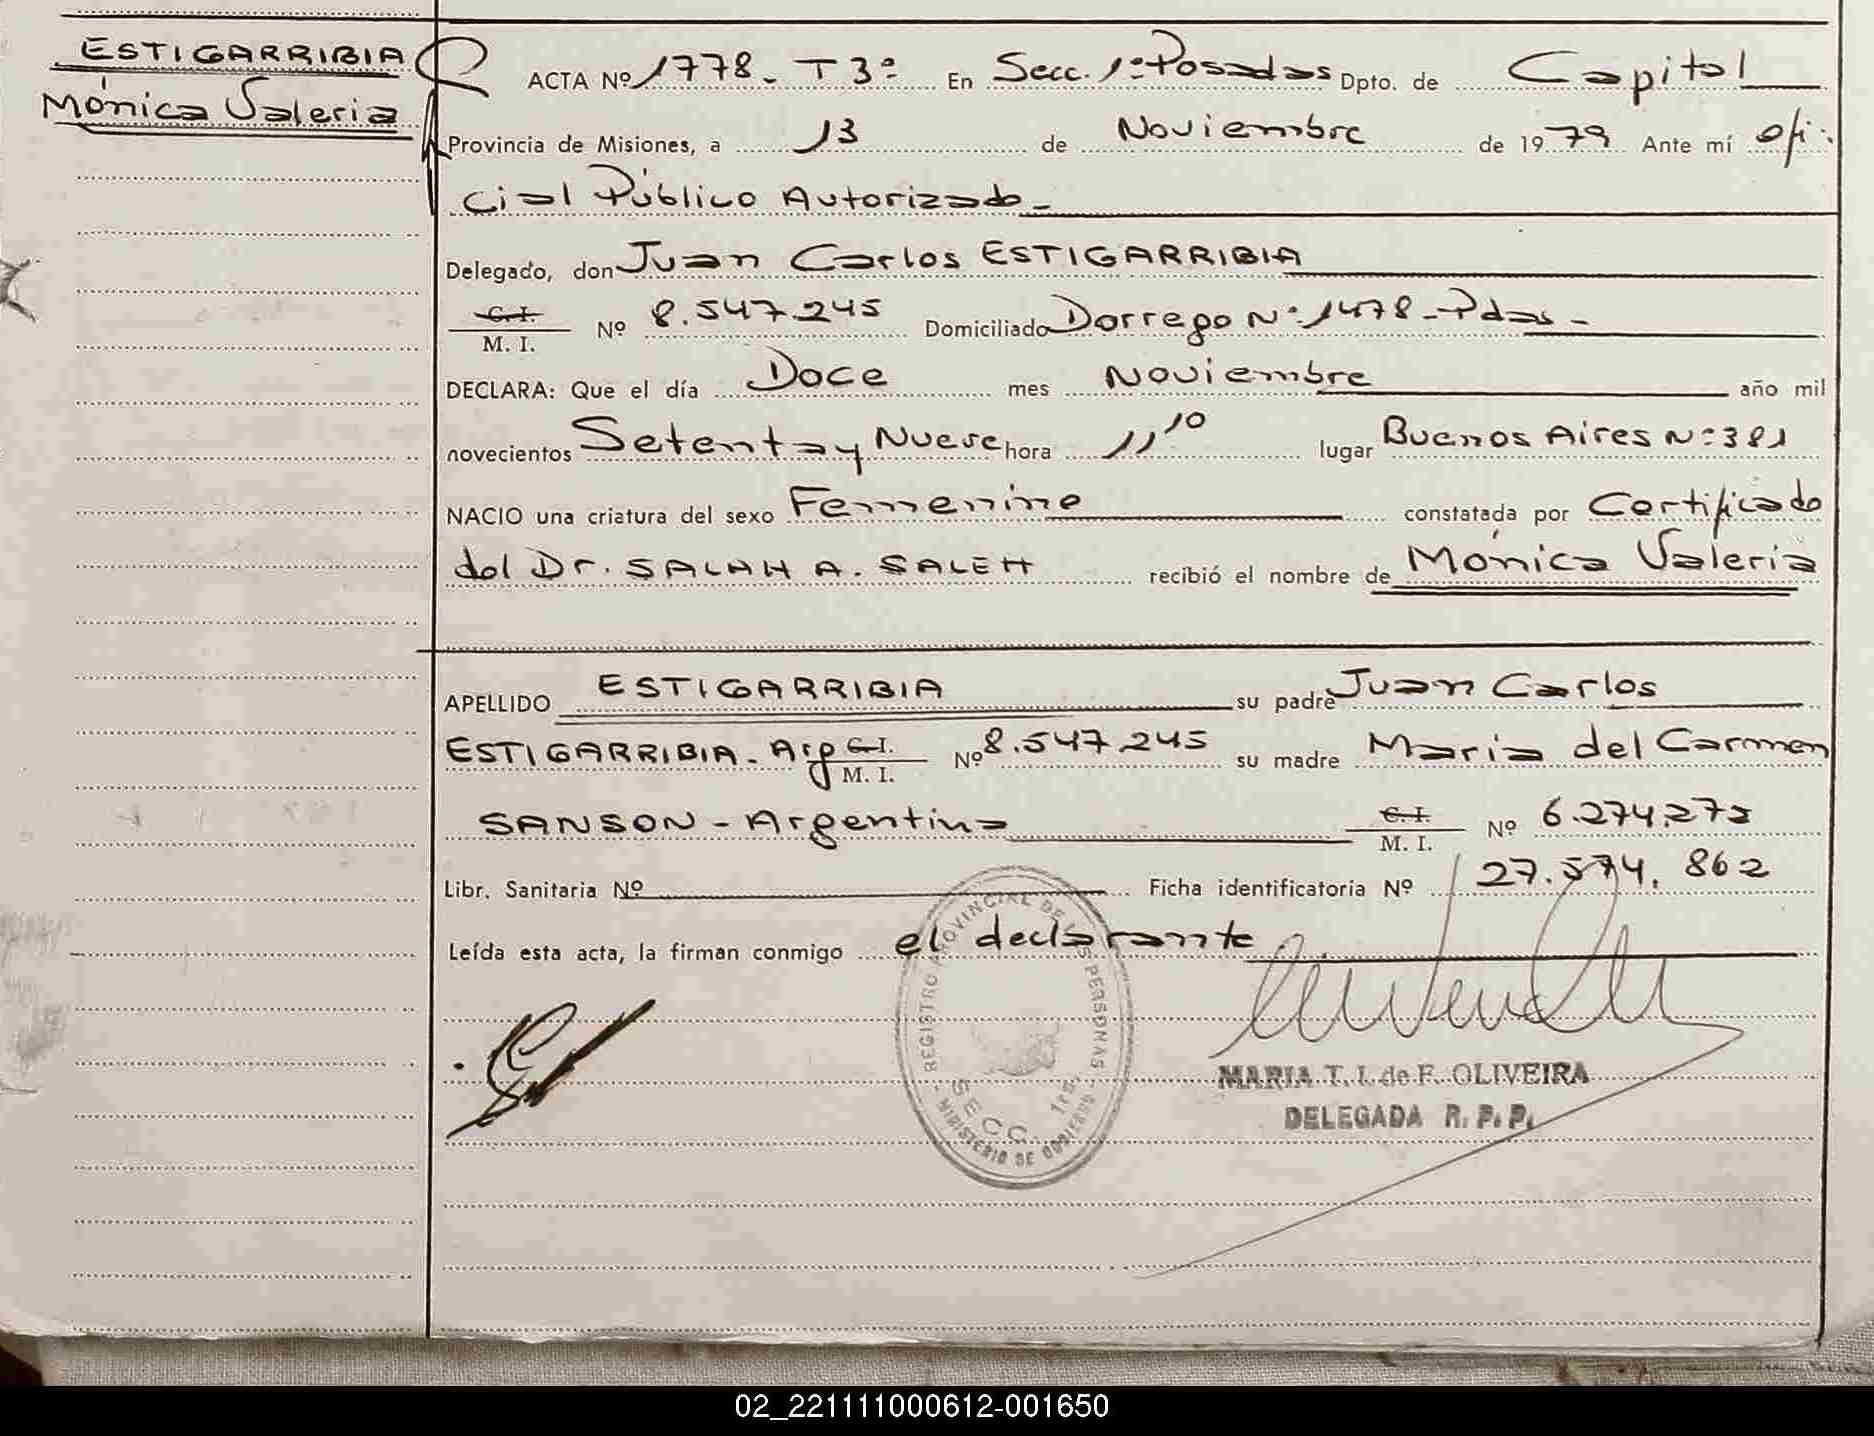 ESTIGARRIBIA
Mónica Valeria
ACTA Nº 1778- T 3º En Secc. 1º Posadas Dpto. de Capital
Provincia de Misiones, a 13 de Noviembre de 1979 Ante mí Ofi-
cial Público Autorizado-
Delegado, don Juan Carlos ESTIGARRIBIA
C. I.
M. I. Nº 8.547.245 Domiciliado Dorrego Nº 1478-Pdas-
DECLARA: Que el día Doce mes Noviembre año mil
novecientos Setenta y Nueve hora 11 10 lugar Buenos Aires Nº 381
NACIO una criatura del sexo Femenino constatada por Certificado
del Dr. SALAH A. SALEH recibió el nombre de Mónica Valeria
APELLIDO ESTIGARRIBIA su padre Juan Carlos
ESTIGARRIBIA- Arg C. I. M. I. Nº 8.547.245 su madre Maria del Carmen
SANSON - Argentina C. I. M. I. Nº
Libr. Sanitaria Nº Ficha identificatoria Nº 27.574.862
Leída esta acta, la firman conmigo el declarante
REGISTRO PROVINCIAL DE LAS PERSONAS
SECC. 1ra.
MINISTERIO DE GOBIERNO
MARIA T. I. de F. OLIVEIRA
DELEGADA R. P. P.
02_221111000612-001650